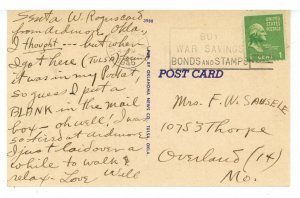 Sent a W. R. postcard
from Ardmore Okla,
I thought --- but when
I got here (Tulsa)
it was in my Pocket,
so guess I put a
BLANK in the mail
box - oh well! I was
so tired at Ardmore
I just laid over a
while to walk &
relax - Love Will
3988
OKLAHOMA NEWS CO. TULSA, OKLA.
BUY
WAR SAVINGS
BONDS AND STAMPS
1 CENT 1
POST CARD
Mrs. F. W. SAUSELE
10753 Thorpe
Overland (14)
Mo.